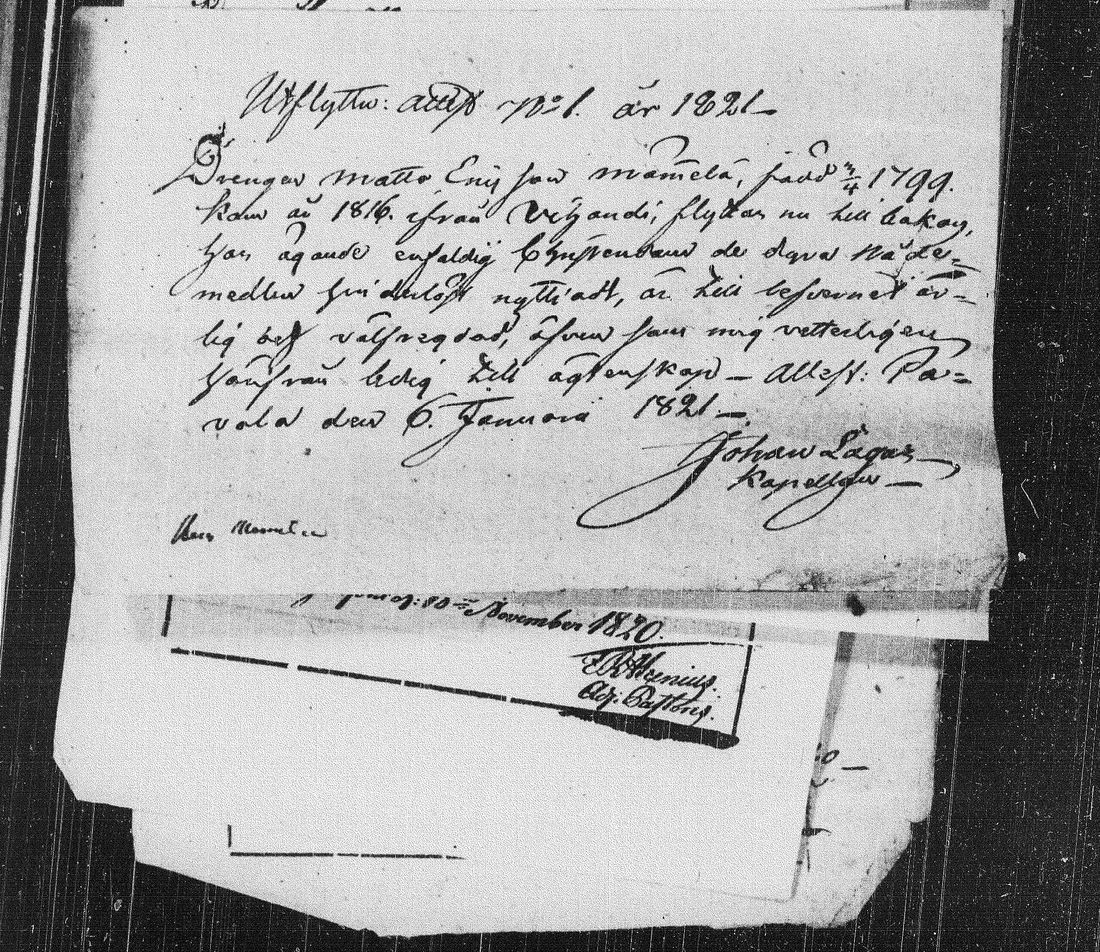 Utflyttn: attest No 1. år 1821 —
Drengen Matts Ersson Mämmelä, född 3/4 1799.
kom år 1816. ifrån Vihandi, flyttar nu till
har ägande enfaldig Christendom de dyra Nåde=
medlen hinderlöst nyttiadt, är till lefvernet är=
lig och välfreydad, äfven som mig vetterligen
från ledig till ägtenskap — Attest: Pa=
vola den 6. Januarii 1821 —.
Johan Lagus —
Kapellan —
November 1820.
Adj: Pastoris.